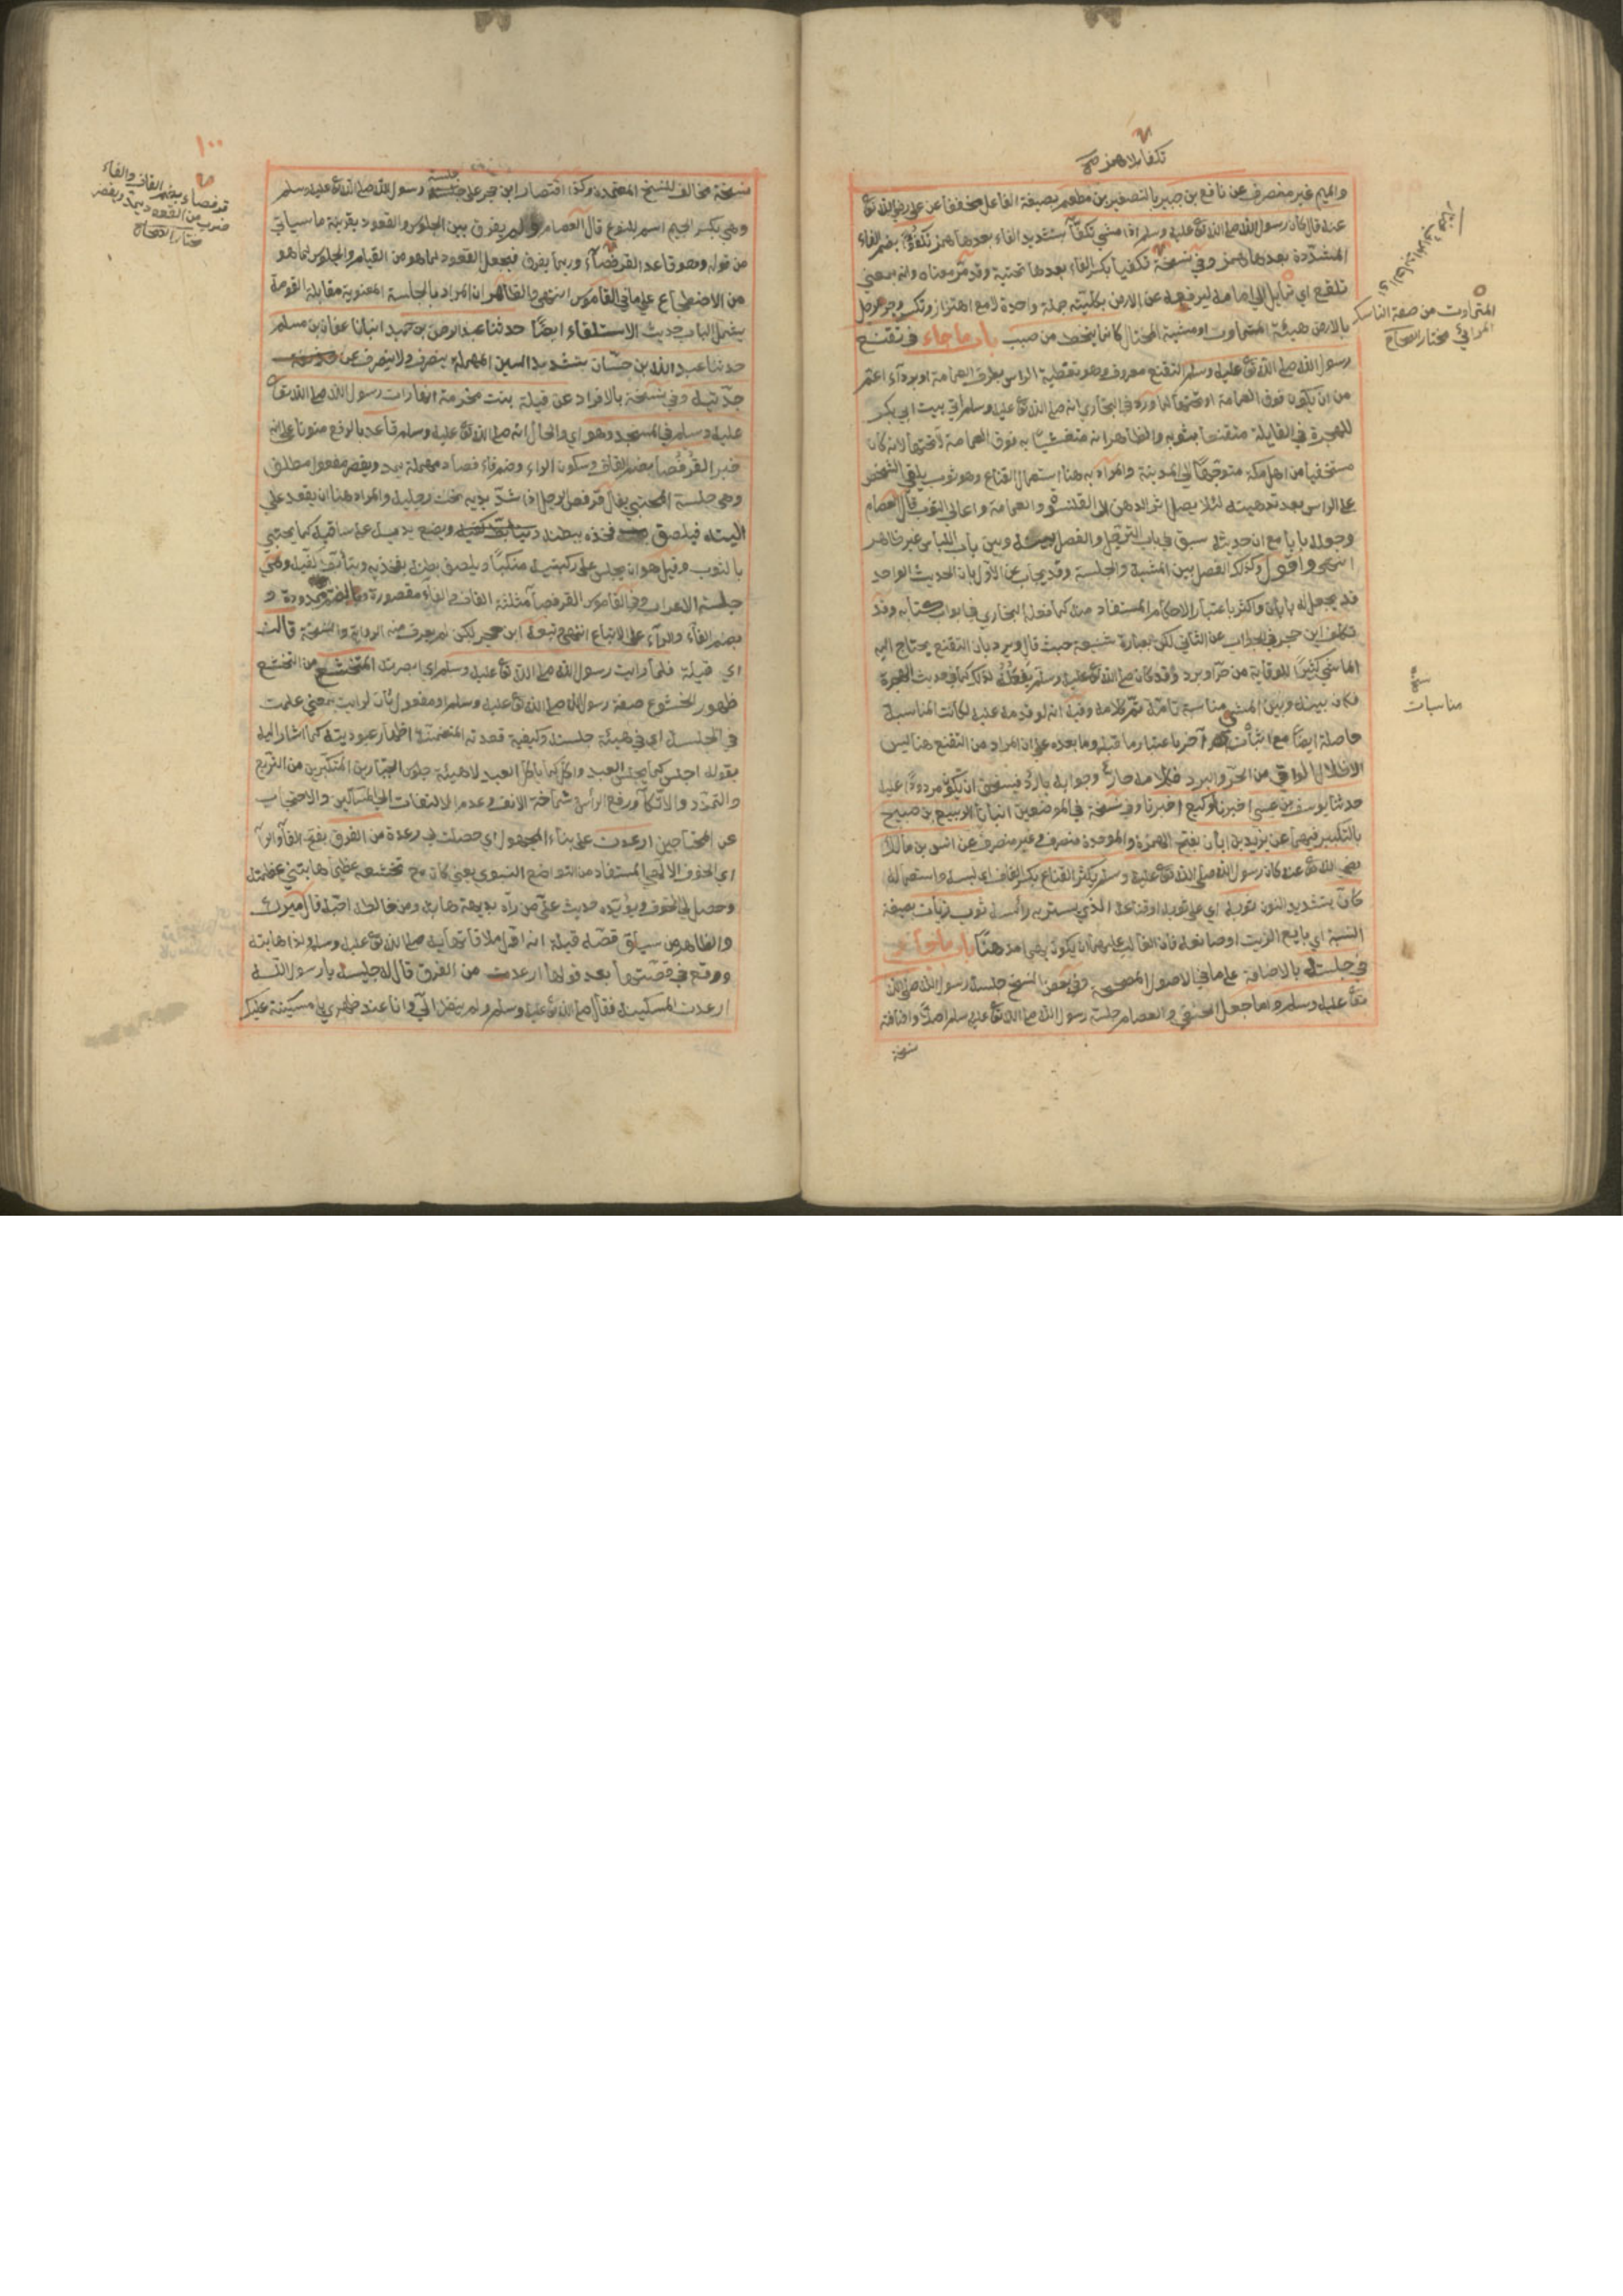 تكفا بلا همز صح
والميم غير منصرف عن نافع بن جبير بالتصغير بن مطعم بصيغة الفاعل مخففا عن علي رضي الله تع
عنه قال كان رسول الله صلى الله تع عليه وسلم اذا مشي تكفّأ بتشديد الفاء بعدها همز تكفؤا بضم الفاء
المشددة بعدها همز وفي نسخة تكفيا بكسر الفاء بعدها تحتية وقد مر معناه وانه بمعني
تقلع اي تمايل الي امامه ليرفعه عن الارض بكليته جملة واحدة لا مع اهتزاز وتكسر وجر رجل
بالارض هيئة المتماوت او مشية المختال كانما ينحط من صبب باب ما جاء في تقنع
رسول الله صلى الله تع عليه وسلم التقنع معروف وهو تغطية الراس بطرف العمامة او برداء اعم
من ان يكون فوق العمامة او تحتها لما ورد في البخاري انه صلى الله تع عليه وسلم اتي بيت ابي بكر
للهجرة في القايلة متقنعا بثوبه والظاهر انه متغشيا به فوق العمامة لا تحتها لانه كان
مستخفيا من اهل مكة متوجها الي المدينة والمراد به هنا استعمال القناع وهو ثوب يلقي الشخص
علي الراس بعد تدهينه لئلا يصل اثر الدهن الي القلنسوة والعمامة واعالي الثوب قال العصام
وجعله بابا مع ان حديثه سبق في باب الترجل والفصل به بينه وبين باب اللباس غير ظاهر
انتهي واقول وكذلك الفصل بين المشية والجلسة وقد يجاب عن الاول بان الحديث الواحد
قد يجعل له بابان واكثر باعتبار الاحكام المستفاد منه كما فعله البخاري في ابواب كتابه وقد
تكلف ابن حجر في الجواب عن الثاني لكن بعبارة شنيعة حيث قال ويرد بان التقنع يحتاج اليه
الماشي كثيرا للوقاية من حر او برد وقد كان صلى الله تع عليه وسلم يفعله لذلك كما في حديث الهجرة
فكان بينه وبين المشي مناسبة تامة تم كلامه وفيه انه لو قدمه عليه لكانت المناسبة
حاصلة ايضا مع اثبات آخر باعتبار ما قبله وما بعده علي ان المراد من التقنع هنا ليس
الاظلال الواقي من الحر والبرد فكلامه حار وجوابه بارد فيستحق ان يكون مردودا عليه
حدثنا يوسف بن عيسي اخبرنا وكيع اخبرنا وفي نسخة في الموضعين انبانا الربيع بن صبيح
بالتكبير فيهما عن يزيد بن ابان بفتح الهمزة والموحدة منصرف وغير منصرف عن انس بن مالك
رضي الله تع عنه كان رسول الله صلى الله تع عليه وسلم يكثر القناع بكسر القاف اي لبسه واستعماله
كان بتشديد النون ثوبه اي علي ثوبه او قناعه الذي يستر به راسه ثوب زيات بصيغة
النسبة اي بايع الزيت او صانعه فان الغالب عليهما ان يكون ثوبهما مدهنا باب ما جاء
في جلسته بالاضافة علي ما في الاصول المصححة وفي بعض النسخ جلسة رسول الله صلى الله
تع عليه وسلم واما جعل الحنفي والعصام جلسة رسول الله صلى الله تع عليه وسلم اصلا واضافته
نسخة
المتماوت من صفة الناسك
المرائي مختار الصحاح
نسخة
مناسبات
١٠٠
نسخة مخالف للنسخ المعتمدة وكذا اقتصار ابن حجر علي جلسة رسول الله صلى الله تع عليه وسلم
وهي بكسر الجيم اسم للنوع قال العصام ولم يفرق بين الجلوس والقعود بقرينة ما سياتي
من قوله وهو قاعد القرفصاء وربما يفرق فيجعل القعود لما هو من القيام والجلوس لما هو
من الاضطجاع علي ما في القاموس انتهي والظاهر ان المراد بالجلسة المعنوية مقابلة القومة
يشمل الباب حديث الاستلقاء ايضا حدثنا عبد الرحمن بن حميد انبانا عفان بن مسلم
حدثنا عبد الله بن حسان بتشديد السين المهملة ينصرف ولا ينصرف عن
جدتيه وفي نسخة بالافراد عن قيلة بنت مخرمة انها رات رسول الله صلى الله تع
عليه وسلم في المسجد وهو اي والحال انه صلى الله تع عليه وسلم قاعد بالرفع منونا علي انه
خبر القرفصا بضم القاف وسكون الراء وضم فاء فصاد مهملة يمد ويقصر مفعول مطلق
وهي جلسة المحتبي يقال قرفص الرجل اذا شد يديه تحت رجليه والمراد هنا ان يقعد علي
اليتيه فيلصق فخذه ببطنه ويضع يديه علي ساقيه كما يحتبي
بالثوب وقيل هو ان يجلس علي ركبتيه منكبا ويلصق بطنه بفخذيه ويتابط كفيه وهي
جلسة الاعراب وفي القاموس القرفصا مثلثة القاف والفاء مقصورة وبالضم ممدودة و
بضم الفاء والراء علي الاتباع انتهي وتبعه ابن حجر لكن لم يعرف منه الرواية والنسخة قالت
اي قيلة فلما رايت رسول الله صلى الله تع عليه وسلم اي ابصرت المتخشع من التخشع
ظهور الخشوع صفة رسول الله صلى الله تع عليه وسلم او مفعول ثان لرايت بمعني علمت
في الجلسة اي في هيئة جلسته وكيفية قعدته المتضمنة اظهار عبوديته كما اشار اليه
بقوله اجلس كما يجلس العبد واكل كما ياكل العبد لا هيئة جلوس الجبارين المتكبرين من التربع
والتمدد والاتكاء ورفع الراس شماخة الانف وعدم الالتفات الي المساكين والاحتجاب
عن المحتاجين ارعدت علي بناء المجهول اي حصلت لي رعدة من الفرق بفتح الفاء والراء
اي الخوف الالهي المستفاد من التواضع النبوي يعني كان مع تخشعه عظيما هابتني عظمته
وحصل لي الخوف ويؤيده حديث علي من رآه بديهة هابه ومن خالطه احبه قال ميرك
والظاهر من سياق قصة قيلة انه اول ملاقاتها به صلى الله تع عليه وسلم ولذا هابته
ووقع في قصتها بعد قولها ارعدت من الفرق قال له جليسه يا رسول الله
ارعدت المسكينة فقال صلى الله تع عليه وسلم ولم ينظر الي وانا عند ظهره يا مسكينة عليك
قرفصاء بضم القاف والفاء
ضرب من القعود يمد ويقصر
مختار الصحاح